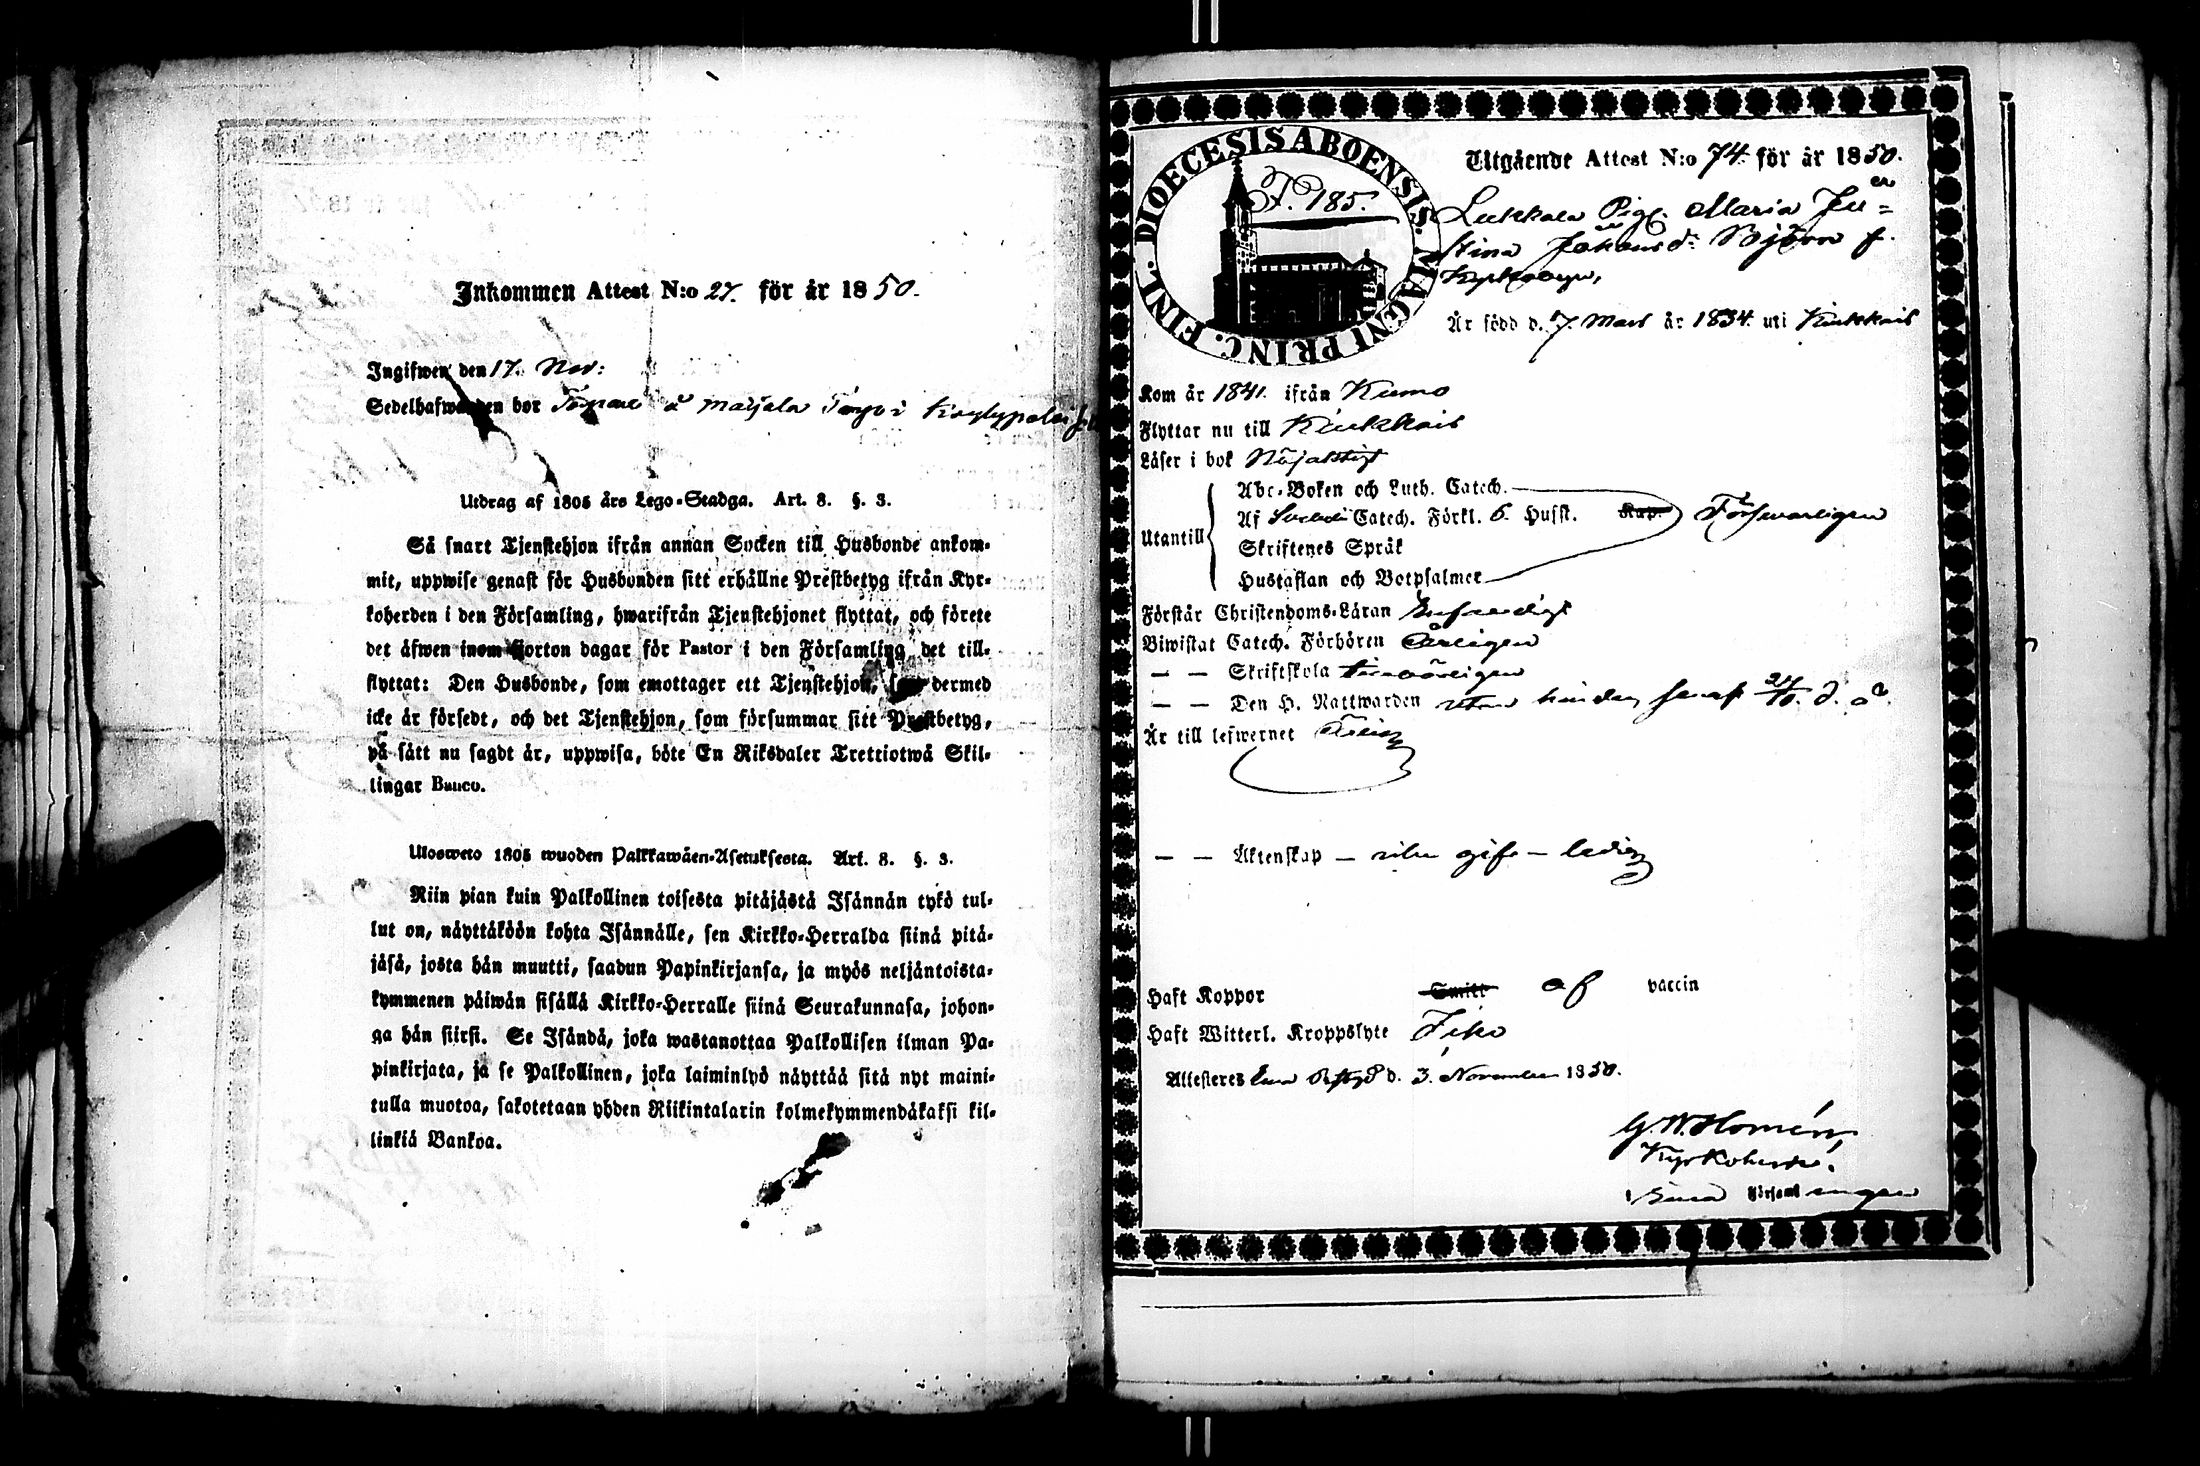 Inkommen Attest N:o 27. för år 1850.
Ingifwen den 17. Nov:
Sedelhafwanden bor
Utdrag af 1805 års Lego-Stadga. Art. 8. §. 3.
Så snart Tjenstehjon ifrån annan Socken till Husbonde ankom-
mit, uppwise genast för Husbonden sitt erhållne Prestbetyg ifrån Kyr-
koherden i den Församling, hwarifrån Tjenstehjonet flyttat, och förete
det äfwen inom fjorton dagar för Pastor i den Församling det till-
flyttat: Den Husbonde, som emottager ett Tjenstehjon, som dermed
icke är försedt, och det Tjenstehjon, som försummar sitt Prestbetyg,
på sätt nu sagdt är, uppwisa, böte En Riksdaler Trettiotwå Skil-
lingar Banco.
Ulosweto 1805 wuoden Palkkawäen-Asetuksesta. Art. 8. §. 3.
Niin pian kuin Palkollinen toisesta pitäjästä Isännän tykö tul-
lut on, näyttäköön kohta Isännälle, sen Kirkko-Herralda siinä pitä-
jäsä, josta hän muutti, saadun Papinkirjansa, ja myös neljäntoista-
kymmenen päiwän sisällä Kirkko-Herralle siinä Seurakunnasa, johon-
ga hän siirsi. Se Isändä, joka wastanottaa Palkollisen ilman Pa-
pinkirjata, ja se Palkollinen, joka laiminlyö näyttää sitä nyt maini-
tulla muotoa, sakotetaan yhden Riikintalarin kolmekymmendäkaksi kil-
linkiä Bankoa.
DIOECESIS ABOENSIS. MAGNI PRINC. FINL.
P. 185.
Utgående Attest N:o 74. för år 1850.
Maria Ju=
stina Johansd:r Björn f.
Är född d. 7. Mars år 1834. uti
Kom år 1841. ifrån Kumo
Flyttar nu till
Läser i bok Nöjaktigt
Utantill
Abc-Boken och Luth. Catech.
Af Svebeli Catech. Förkl. 6. Husst. Kap. Försvarligen
Skriftenes Språk
Hustaflan och Botpsalmer
Förstår Christendoms-Läran
Biwistat Catech. Förhören Årligen
— — Skriftskola
— — Den H. Nattwarden utan hinder senast d. å.
Är till lefwernet Ärlig
— — Äktenskap — icke gift — ledig
Haft Koppor Smitt af vaccin
Haft Witterl. Kroppslyte Icke
Attesteres d. 3. November 1850.
G. W. Homén,
Kyrkoherde.
Församlingen